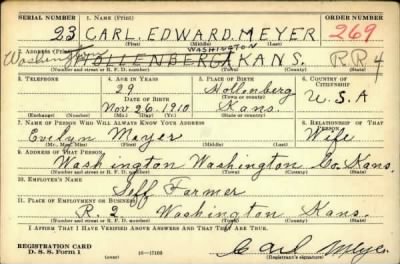 SERIAL NUMBER 1. NAME (Print) ORDER NUMBER
23 CARL. EDWARD. MEYER 269
(First) (Middle) (Last)
WASHINGTON
2. ADDRESS (Print)
Washington HOLLENBERG KANS. R.R 4
(Number and street or R. F. D. number) (Town) (County) (State)
3. TELEPHONE 4. AGE IN YEARS 5. PLACE OF BIRTH 6. COUNTRY OF CITIZENSHIP
29 Hollenberg
DATE OF BIRTH (Town or county) U.S.A
Nov 26. 1910. Kans.
(Exchange) (Number) (Mo.) (Day) (Yr.) (State or country)
7. NAME OF PERSON WHO WILL ALWAYS KNOW YOUR ADDRESS 8. RELATIONSHIP OF THAT PERSON
Evelyn Meyer Wife
(Mr., Mrs., Miss) (First) (Middle) (Last)
9. ADDRESS OF THAT PERSON
Washington Washington Co. Kans.
(Number and street or R. F. D. number) (Town) (County) (State)
10. EMPLOYER'S NAME
Self Farmer
11. PLACE OF EMPLOYMENT OR BUSINESS
R. 2 Washington Kans.
(Number and street or R. F. D. number) (Town) (County) (State)
I AFFIRM THAT I HAVE VERIFIED ABOVE ANSWERS AND THAT THEY ARE TRUE.
REGISTRATION CARD
D. S. S. Form 1 16—17105 Carl Meyer
(Registrant's signature)